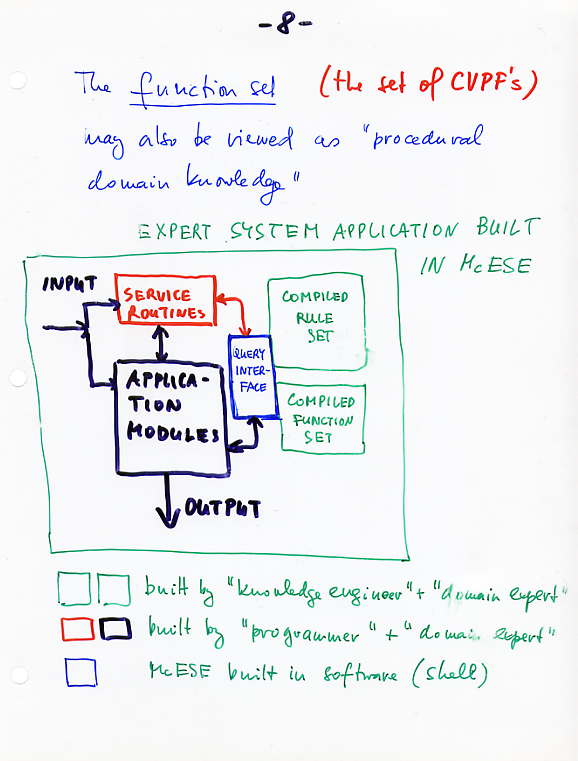 -8-
The function set (the set of CVPF's)
may also be viewed as "procedural
domain knowledge"
EXPERT SYSTEM APPLICATION BUILT
IN McESE
INPUT
SERVICE
ROUTINES
COMPILED
RULE
SET
QUERY
INTER-
FACE
APPLICA-
TION
MODULES
COMPILED
FUNCTION
SET
OUTPUT
built by "knowledge engineer" + "domain expert"
built by "programmer" + "domain expert"
McESE built in software (shell)